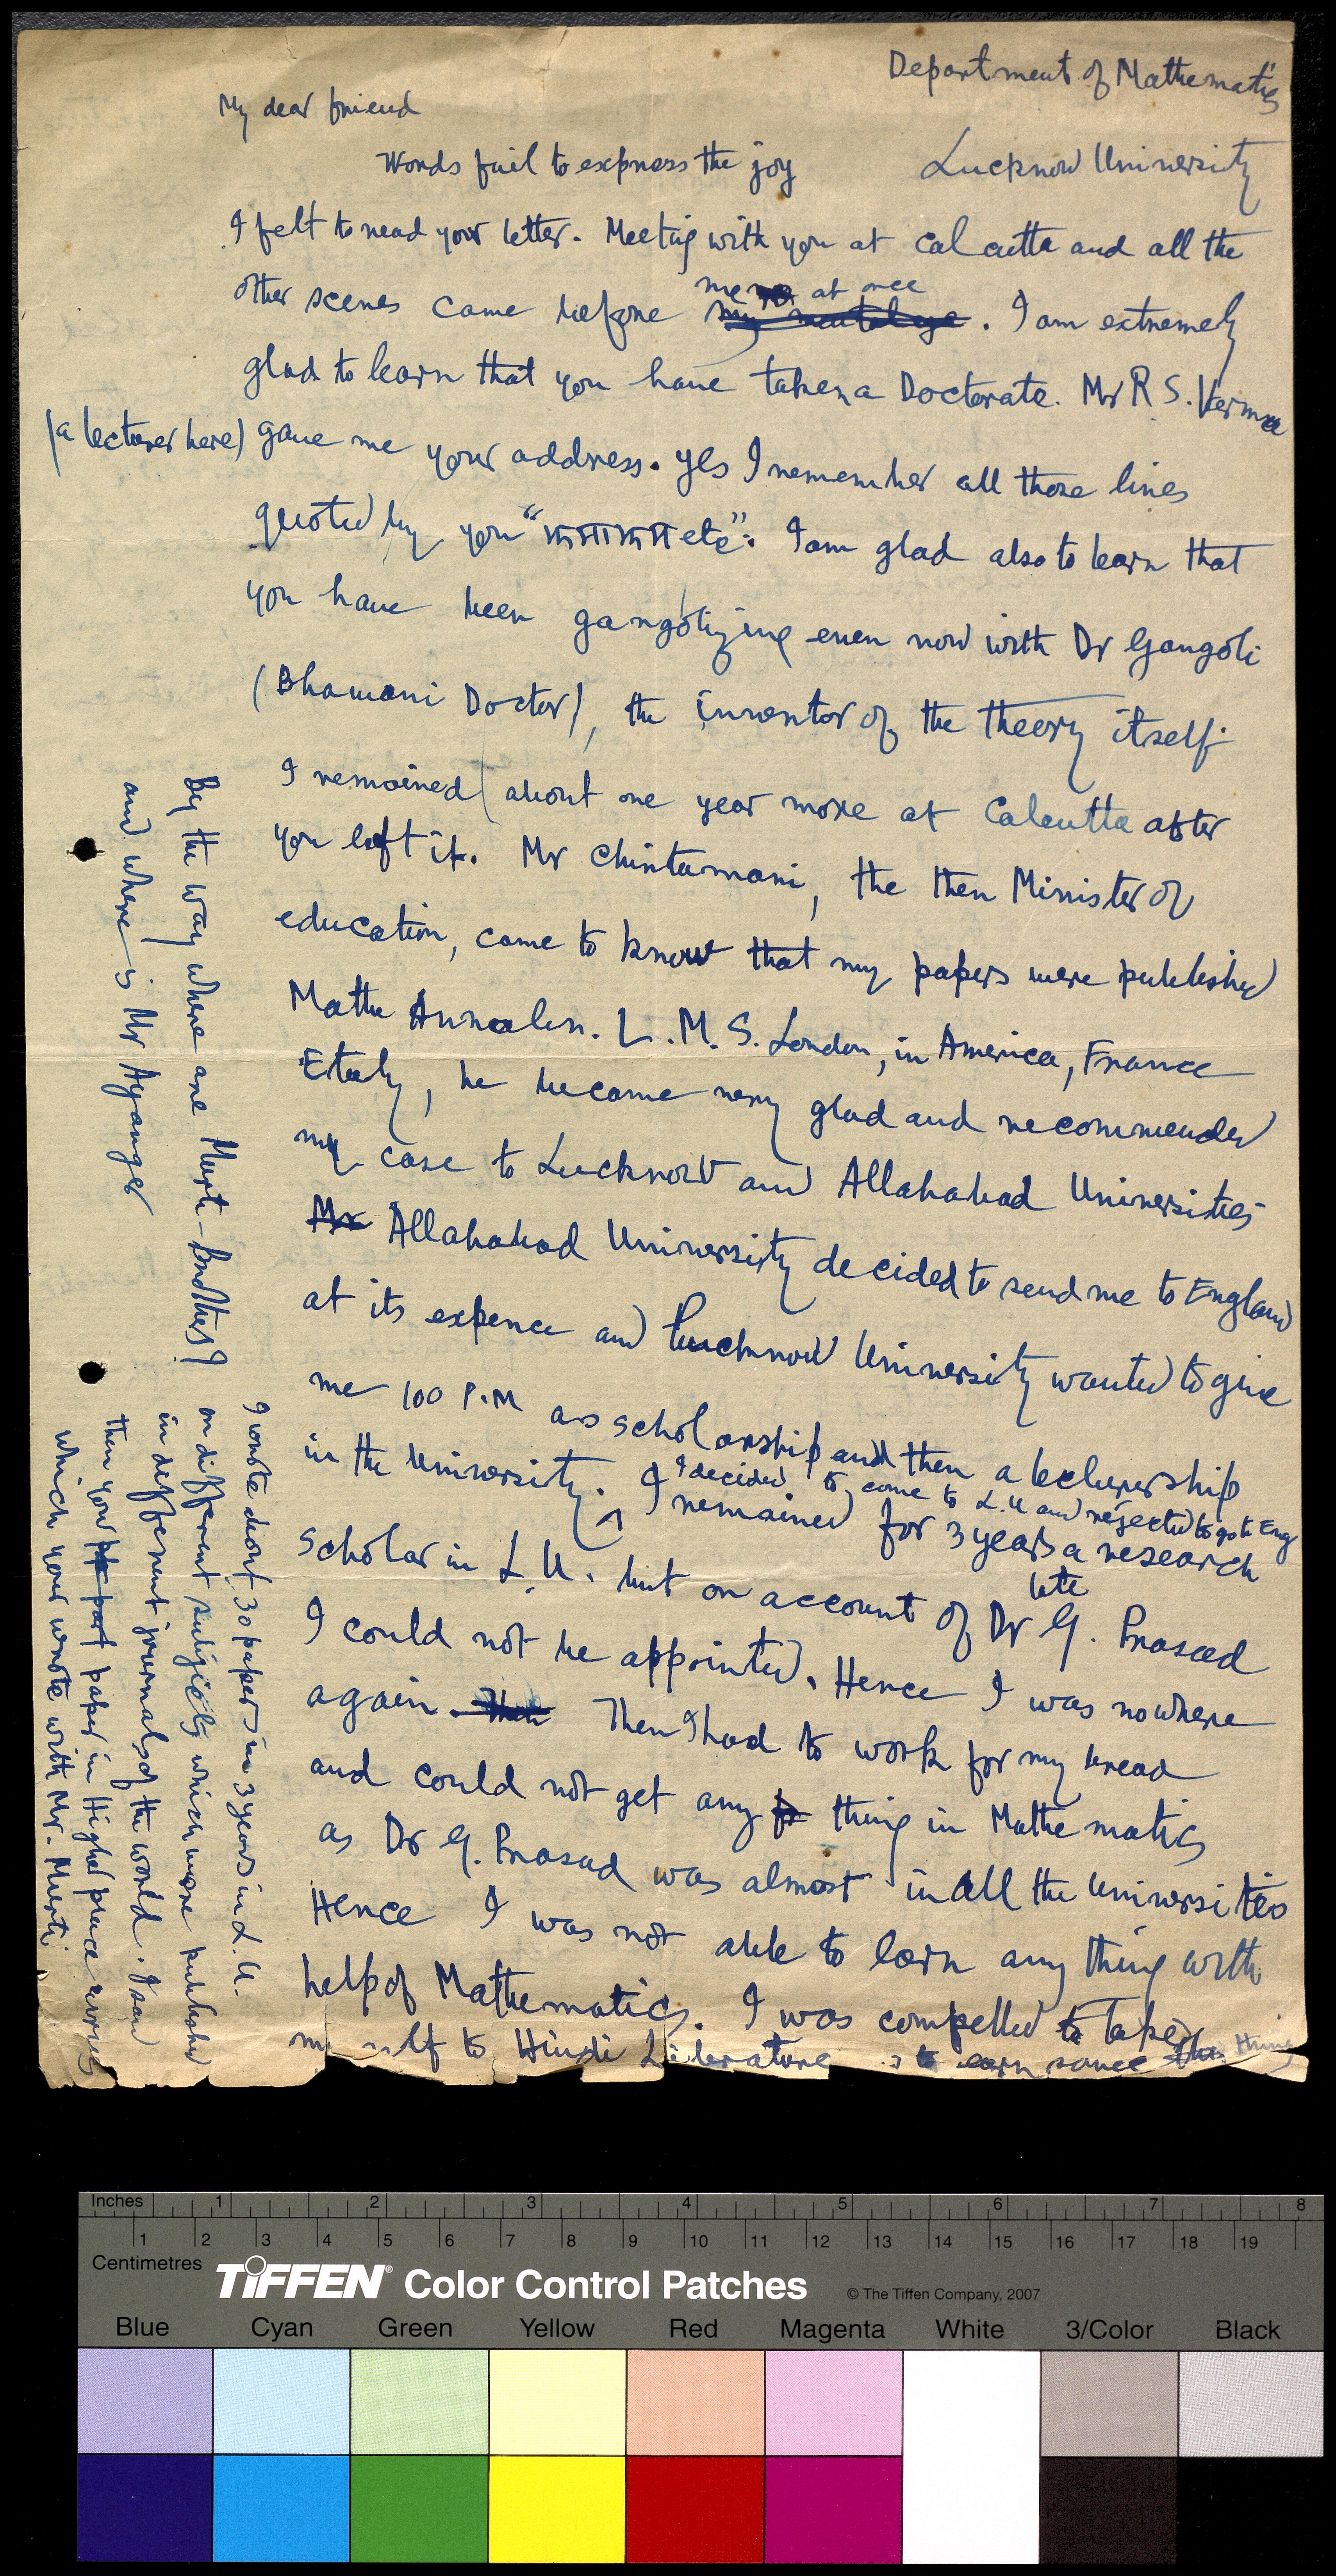 Department of Mathematics
My dear friend
Words fail to express the joy
Lucknow University
I felt to read your letter. Meeting with you at Calcutta and all the
me at once
other scenes came before my mental eye. I am extremely
glad to learn that you have taken a Doctorate. Mr R S. Verma
(a lecturer here) gave me your address. Yes I remember all those lines
quoted by you " etc". I am glad also to learn that
you have been gangolizing even now with Dr Gangoli
(Bhawani Doctor), the inventor of the theory itself.
I remained about one year more at Calcutta after
you left it. Mr Chintamani, the then Minister of
education, came to know that my papers were published
Mathe Annalen. L.M.S. London, in America, France
Etaly, he became very glad and recommended
my case to Lucknow and Allahabad Universities
Mr Allahabad University decided to send me to England
at its expence and Lucknow University wanted to give
me 100 P.M as scholarship and then a lecturership
I decided to come to L.U and rejected to go to Eng
in the University. I remained for 3 years a research
late
scholar in L.U. but on account of Dr G. Prasad
I could not be appointed. Hence I was nowhere
again. Then Then I had to work for my bread
and could not get any thing in Mathematics
as Dr G. Prasad was almost in all the Universities
Hence I was not able to earn any thing with
help of Mathematics. I was compelled to take
to Hindi Literature to earn some thing
By the way where are Murti-Brothers?
and where is Mr Ayanger
I wrote about 30 papers in 3 years in L.U.
on different subjects which were published
in different journals of the world. I saw
then your paper in Higher place curves
which you wrote with Mr. Murti
Inches 1 2 3 4 5 6 7 8
1 2 3 4 5 6 7 8 9 10 11 12 13 14 15 16 17 18 19
Centimetres
TIFFEN® Color Control Patches © The Tiffen Company, 2007
Blue Cyan Green Yellow Red Magenta White 3/Color Black